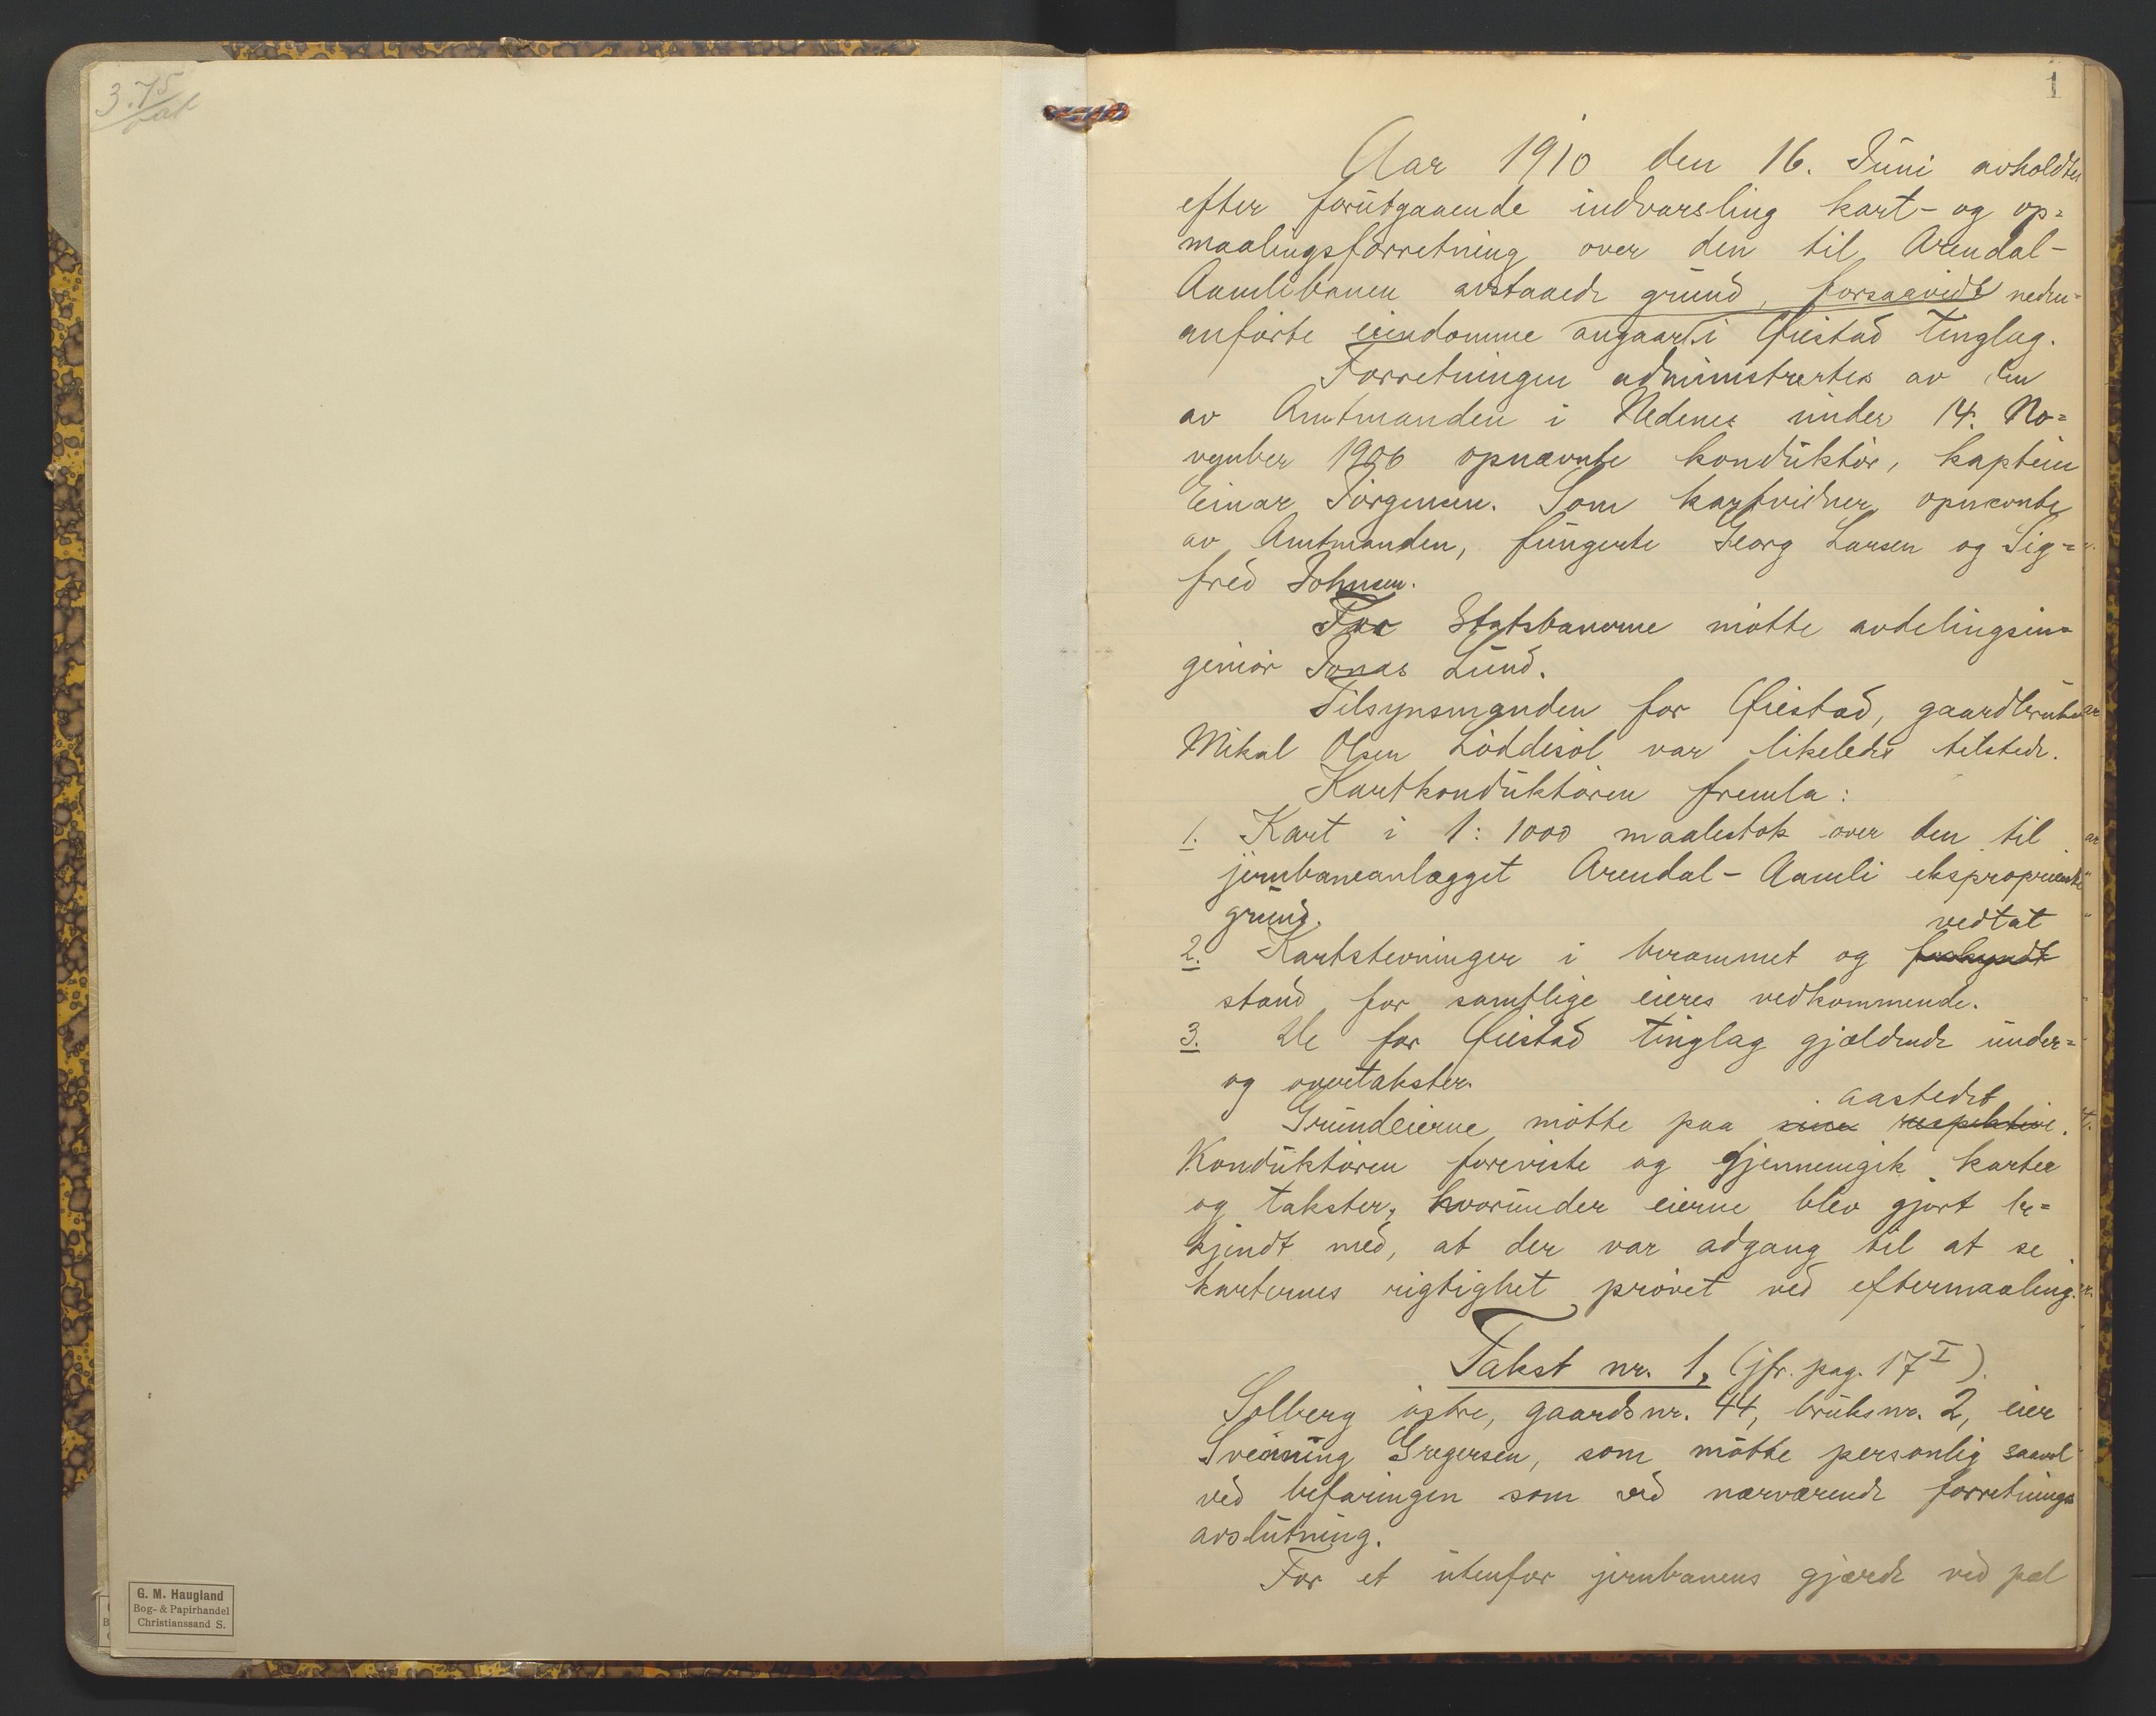 3.75
1
Aar 1910 den 16. Juni avholdtes
efter forutgaaende indvarsling kart- og op=
maalingsforretning over den til Arendal-
Aamlibanen avstaaede grund, forsaavidt neden-
anførte eiendomme angaar i Øiestad tinglag.
Forretningen administrertes av den
av Amtmanden i Nedenes under 14. No=
vember 1906 opnævnte konduktør, kaptein
Einar Jørgensen. Som kartvidner, opnævnte
av Amtmanden, fungerte Georg Larsen og Sig=
fred Johnsen.
For Statsbanerne møtte avdelingsin=
geniør Jonas Lund.
Tilsynsmanden for Øiestad, gaardbruker
Mikal Olsen Løddesøl var likeledes tilstede.
Kartkonduktøren fremla:
1. Kart i 1:1000 maalestok over den til
jernbaneanlægget Arendal-Aamli eksproprierte
grund.
vedtat
2. Kartstevninger i berammet og forkyndt
stand for samtlige eieres vedkommende.
3. De for Øiestad tinglag gjældende under=
og overtakster.
aastedet
Grundeierne møtte paa sine respektive.
Konduktøren foreviste og gjennemgik karter
og takster, hvorunder eierne blev gjort be=
kjendt med, at der var adgang til at se
karternes rigtighet prøvet ved eftermaaling.
Takst nr. 1, (jfr. pag. 17 I).
Solberg østre, gaardsnr. 44, bruksnr. 2, eier
Svenning Gregersen, som møtte personlig saavel
ved befaringen som ved nærværende forretnings
avslutning.
For et utenfor jernbanens gjærde ved pæl
G. M. Haugland
Bog- & Papirhandel
Christianssand S.